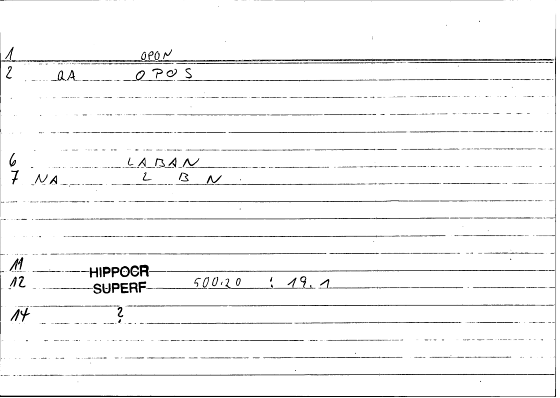 1 OPON
2 QA OPOS
6 LABAN
7 NA L B N
11 HIPPOCR
12 SUPERF 500.20 : 19.1
14 ?